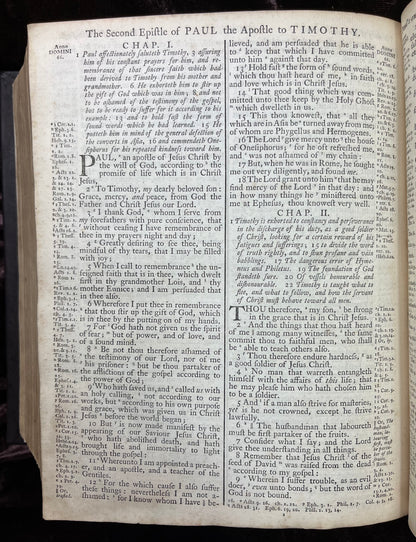 The Second Epistle of PAUL the Apostle to TIMOTHY.
Anno
DOMINI
CHAP. I.
1 Paul affectionately saluteth Timothy, 3 assuring
him of his constant prayers for him, and re-
membrance of that sincere faith which had
been derived to Timothy from his mother and
grandmother. 6 He exhorteth him to stir up
the gift of God which was in him; 8 and not
to be ashamed of the testimony of the gospel,
but to be ready to suffer for it according to his
example: 13 and to hold fast the form of
sound words which he had learned. 15 He
putteth him in mind of the general defection of
the converts in Asia, 16 and commendeth Onesi-
phorus for his repeated kindness toward him.
PAUL, an apostle of Jesus Christ by
the will of God, according to the
promise of life which is in Christ
Jesus,
2 To Timothy, my dearly beloved son:
Grace, mercy, and peace, from God the
Father and Christ Jesus our Lord.
3 I thank God, whom I serve from
my forefathers with pure conscience, that
without ceasing I have remembrance of
thee in my prayers night and day;
4 Greatly desiring to see thee, being
mindful of thy tears, that I may be filled
with joy;
5 When I call to remembrance the un-
feigned faith that is in thee, which dwelt
first in thy grandmother Lois, and thy
mother Eunice; and I am persuaded that
in thee also.
6 Wherefore I put thee in remembrance
that thou stir up the gift of God, which
is in thee by the putting on of my hands.
7 For God hath not given us the spirit
of fear; but of power, and of love, and
of a sound mind.
8 Be not thou therefore ashamed of
the testimony of our Lord, nor of me
his prisoner: but be thou partaker of
the afflictions of the gospel according to
the power of God;
9 Who hath saved us, and called us with
an holy calling, not according to our
works, but according to his own purpose
and grace, which was given us in Christ
Jesus before the world began;
10 But is now made manifest by the
appearing of our Saviour Jesus Christ,
who hath abolished death, and hath
brought life and immortality to light
through the gospel:
11 Whereunto I am appointed a preach-
er, and an apostle, and a teacher of the
Gentiles.
12 For the which cause I also suffer
these things: nevertheless I am not a-
shamed: for I know whom I have be-
lieved, and am persuaded that he is able
to keep that which I have committed
unto him against that day.
13 Hold fast the form of sound words,
which thou hast heard of me, in faith
and love which is in Christ Jesus.
14 That good thing which was com-
mitted unto thee keep by the Holy Ghost
which dwelleth in us.
15 This thou knowest, that all they
which are in Asia be turned away from me;
of whom are Phygellus and Hermogenes.
16 The Lord give mercy unto the house
of Onesiphorus; for he oft refreshed me,
and was not ashamed of my chain:
17 But, when he was in Rome, he sought
me out very diligently, and found me.
18 The Lord grant unto him that he may
find mercy of the Lord in that day: and
in how many things he ministered unto
me at Ephesus, thou knowest very well.
CHAP. II.
1 Timothy is exhorted to constancy and perseverance
in the discharge of his duty, as a good soldier
of Christ, looking for a certain reward of his
fatigues and sufferings; 15 to divide the word
of truth rightly, and to shun profane and vain
babblings. 17 The dangerous error of Hyme-
neus and Philetus. 19 The foundation of God
standeth sure. 20 Of vessels honourable and
dishonourable. 22 Timothy is taught what to
flee, and what to follow, and how the servant
of Christ must behave toward all men.
THOU therefore, my son, be strong
in the grace that is in Christ Jesus.
2 And the things that thou hast heard
of me among many witnesses, the same
commit thou to faithful men, who shall
be able to teach others also.
3 Thou therefore endure hardness, as
a good soldier of Jesus Christ.
4 No man that warreth entangleth
himself with the affairs of this life; that
he may please him who hath chosen him
to be a soldier.
5 And if a man also strive for masteries,
yet is he not crowned, except he strive
lawfully.
6 The husbandman that laboureth
must be first partaker of the fruits.
7 Consider what I say; and the Lord
give thee understanding in all things.
8 Remember that Jesus Christ of the
seed of David was raised from the dead
according to my gospel:
9 Wherein I suffer trouble, as an evil
doer, even unto bonds; but the word of
God is not bound.